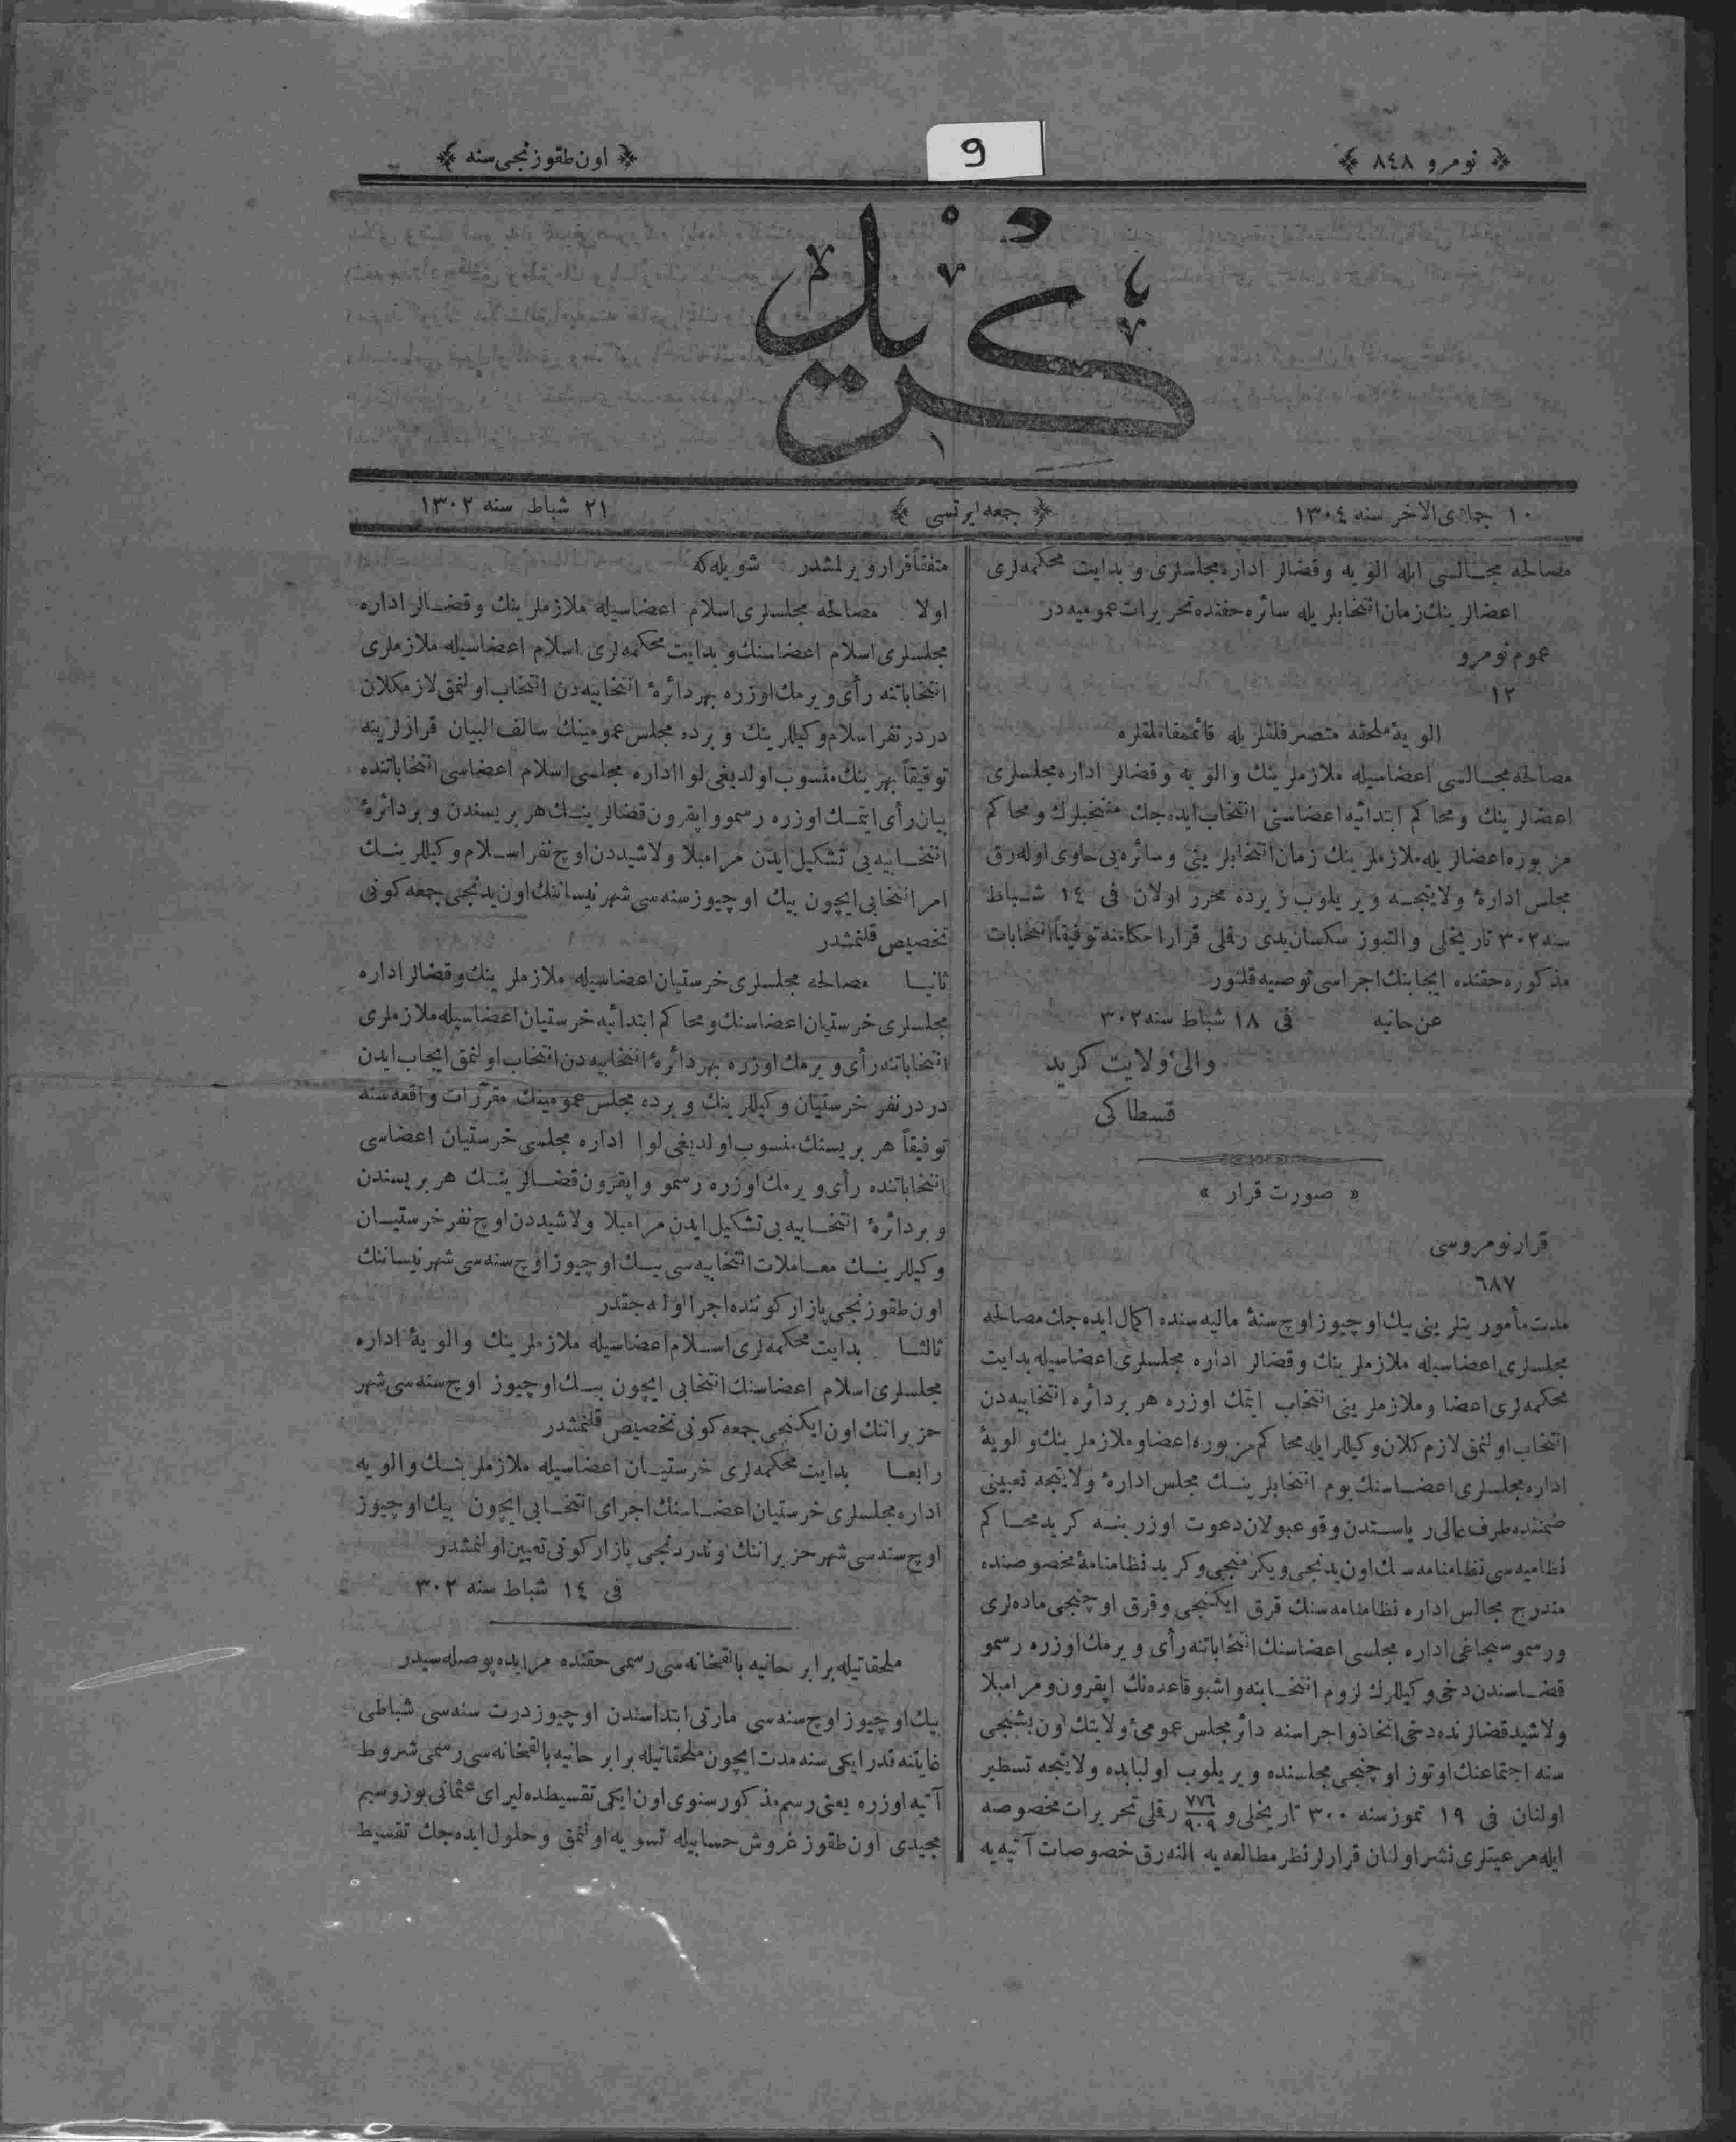 نومرو ٨٤٨
9
اون طقوزنجی سنه
كريد
١٠ جمادی الاخر سنه ١٣٠٤
جمعه ایرتسی
٢١ شباط سنه ١٣٠٢
مصالحه مجالسی ایله الویه وقضالر اداره مجلسلری و بدایت محکمه‌لری
اعضالرینك زمان انتخابلریله سائره حقنده تحریرات عمومیه‌در
عموم نومرو
١٢
الویهٔ ملحقه متصرفلقلریله قائممقاملقلره
مصالحه مجالسی اعضاسیله ملازملرینك والویه وقضالر اداره مجلسلری
اعضالرینك ومحاکم ابتدائیه اعضاسنی انتخاب ایده‌جك منتخبلرك ومحاکم
مزبوره اعضالریله ملازملرینك زمان انتخابلرینی وسائره‌یی حاوی اوله‌رق
مجلس ادارهٔ ولایتجه ویریلوب زیرده محرر اولان فی ١٤ شباط
سنه ٣٠٢ تاریخلی والتیوز سکسان یدی رقلی قرار احکامنه توفیقاً انتخابات
مذکوره حقنده ایجابنك اجراسی توصیه قلنور
عن حانیه فی ١٨ شباط سنه ٣٠٢
والیٔ ولایت کرید
قسطاکی
« صورت قرار »
قرار نومروسی
٦٨٧
مدت مأموریتلرینی بیك اوچیوز اوچ سنهٔ مالیه‌سنده اکمال ایده‌جك مصالحه
مجلسلری اعضاسیله ملازملرینك وقضالر اداره مجلسلری اعضاسیله بدایت
محکمه‌لری اعضا وملازملرینی انتخاب ایتمك اوزره هر بر دائره انتخابیه‌دن
انتخاب اولنمق لازم کلان وکیللر ایله محاکم مزبوره اعضا وملازملرینك والویهٔ
اداره مجلسلری اعضاسنك یوم انتخابلرینك مجلس ادارهٔ ولایتجه تعیینی
ضمننده طرف عالی ریاستدن وقوعبولان دعوت اوزرینه کرید محاکم
نظامیه‌سی نظامنامه‌سنك اون یدنجی ویکرمنجی وکرید نظامنامهٔ مخصوصنده
مندرج مجالس اداره نظامنامه‌سنك قرق ایکنجی وقرق اوچنجی ماده‌لری
ورسمو سنجاغی اداره مجلسی اعضاسنك انتخاباتنه رأی ویرمك اوزره رسمو
قضاسندن دخی وکیللرك لزوم انتخابنه واشبو قاعده‌نك اپقرون ومرامبلا
ولاشید قضالرنده دخی اتخاذ واجراسنه دائر مجلس عمومیٔ ولایتك اون بشنجی
سنه اجتماعنك اوتوز اوچنجی مجلسنده ویریلوب اولبابده ولایتجه تسطیر
اولنان فی ١٩ تموز سنه ٣٠٠ تاریخلی و ٧٧٦/٩٠٩ رقلی تحریرات مخصوصه
ایله مرعیتلری نشر اولنان قرارلر نظر مطالعه‌یه النه‌رق خصوصات آتیه‌یه
متفقاً قرار ویرلمشدر شویله‌که
اولا مصالحه مجلسلری اسلام اعضاسیله ملازملرینك وقضالر اداره
مجلسلری اسلام اعضاسنك و بدایت محکمه‌لری اسلام اعضاسیله ملازملری
انتخاباتنه رأی ویرمك اوزره بهر دائرهٔ انتخابیه‌دن انتخاب اولنمق لازمکلان
دردر نفر اسلام وکیللرینك و برده مجلس عمومینك سالف البیان قرارلرینه
توفیقاً بهرینك منسوب اولدیغی لوا اداره مجلسی اسلام اعضاسی انتخاباتنده
بیان رأی ایتمك اوزره رسمو واپقرون قضالرینك هر بریسندن و بر دائرهٔ
انتخابیه‌یی تشکیل ایدن مرامبلا ولاشیددن اوچ نفر اسلام وکیللرینك
امر انتخابی ایچون بیك اوچیوز سنه‌سی شهر نیساننك اون یدنجی جمعه کونی
تخصیص قلنمشدر
ثانیا مصالحه مجلسلری خرستیان اعضاسیله ملازملرینك وقضالر اداره
مجلسلری خرستیان اعضاسنك ومحاکم ابتدائیه خرستیان اعضاسیله ملازملری
انتخاباتنه رأی ویرمك اوزره بهر دائرهٔ انتخابیه‌دن انتخاب اولنمق ایجاب ایدن
دردر نفر خرستیان وکیللرینك و برده مجلس عمومینك مقررات واقعه‌سنه
توفیقاً هر بریسنك منسوب اولدیغی لوا اداره مجلسی خرستیان اعضاسی
انتخاباتنده رأی ویرمك اوزره رسمو واپقرون قضالرینك هر بریسندن
و بر دائرهٔ انتخابیه‌یی تشکیل ایدن مرامبلا ولاشیددن اوچ نفر خرستیان
وکیللرینك معاملات انتخابیه‌سی بیك اوچیوز اوچ سنه‌سی شهر نیساننك
اون طقوزنجی پازار کوننده اجرا اوله‌جقدر
ثالثا بدایت محکمه‌لری اسلام اعضاسیله ملازملرینك والویهٔ اداره
مجلسلری اسلام اعضاسنك انتخابی ایچون بیك اوچیوز اوچ سنه‌سی شهر
حزیراننك اون ایکنجی جمعه کونی تخصیص قلنمشدر
رابعا بدایت محکمه‌لری خرستیان اعضاسیله ملازملرینك والویه
اداره مجلسلری خرستیان اعضاسنك اجرای انتخابی ایچون بیك اوچیوز
اوچ سنه‌سی شهر حزیراننك اوندردنجی پازار کونی تعیین اولنمشدر
فی ١٤ شباط سنه ٣٠٢
ملحقاتیله برابر حانیه بالقخانه‌سی رسمی حقنده مزایده پوصله‌سیدر
بیك اوچیوز اوچ سنه‌سی مارتی ابتداسندن اوچیوز درت سنه‌سی شباطی
غایتنه قدر ایکی سنه مدت ایچون ملحقاتیله برابر حانیه بالقخانه‌سی رسمی شروط
آتیه اوزره یعنی رسم مذکور سنوی اون ایکی تقسیطده لیرای عثمانی یوز وسیم
مجیدی اون طقوز غروش حسابیله تسویه اولنمق وحلول ایده‌جك تقسیط